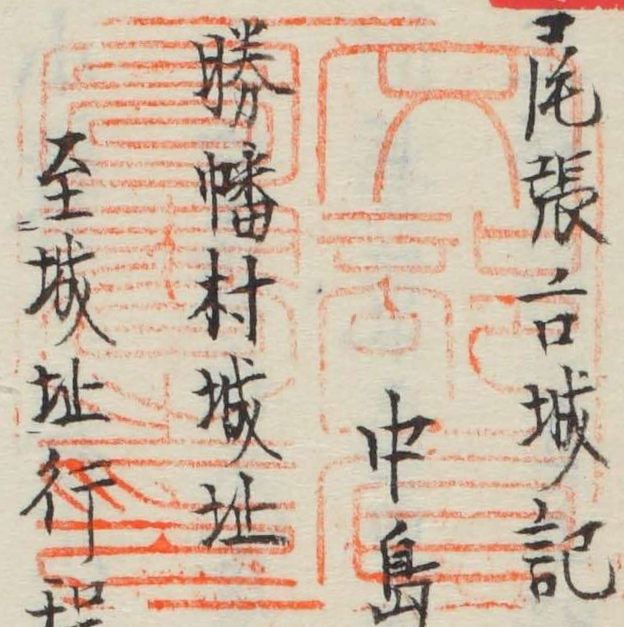 尾張古城記
中島
勝幡村城址
至城址行程